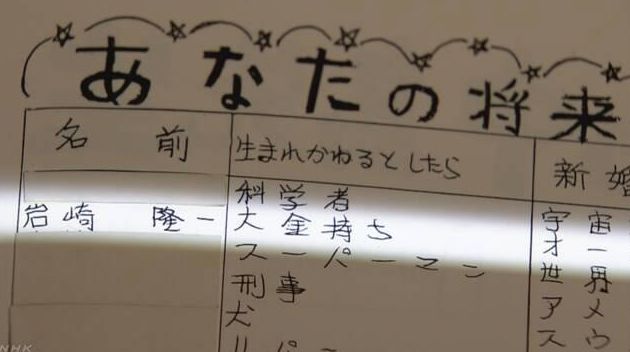 あなたの将来
名前 生まれかわるとしたら 新婚
科学者
岩崎 隆一 大金持ち 宇宙
スーパーマン オー
刑事 世界
犬 アメ
リパー スウ
NHK